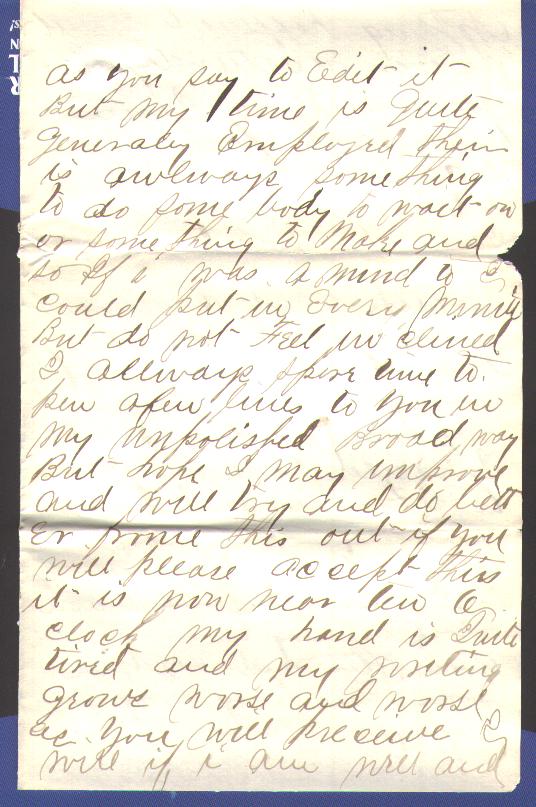 as you say to Edit it
But my time is Quite
Generaly Employed their
is awlways something
to do some body to wait on
or some thing to Make and
so If i was a mind to I
could put in Every Minit
But do not Feel in clined
I allways spare time to
pen a few lines to you in
my unpolished Broad way
But hope I may improve
and will try and do bett
er frome this out if you
will please accept this
it is now near ten O
clock my hand is Quite
tired and my writing
grows worse and worse
as you will preceive I
will if i am well and